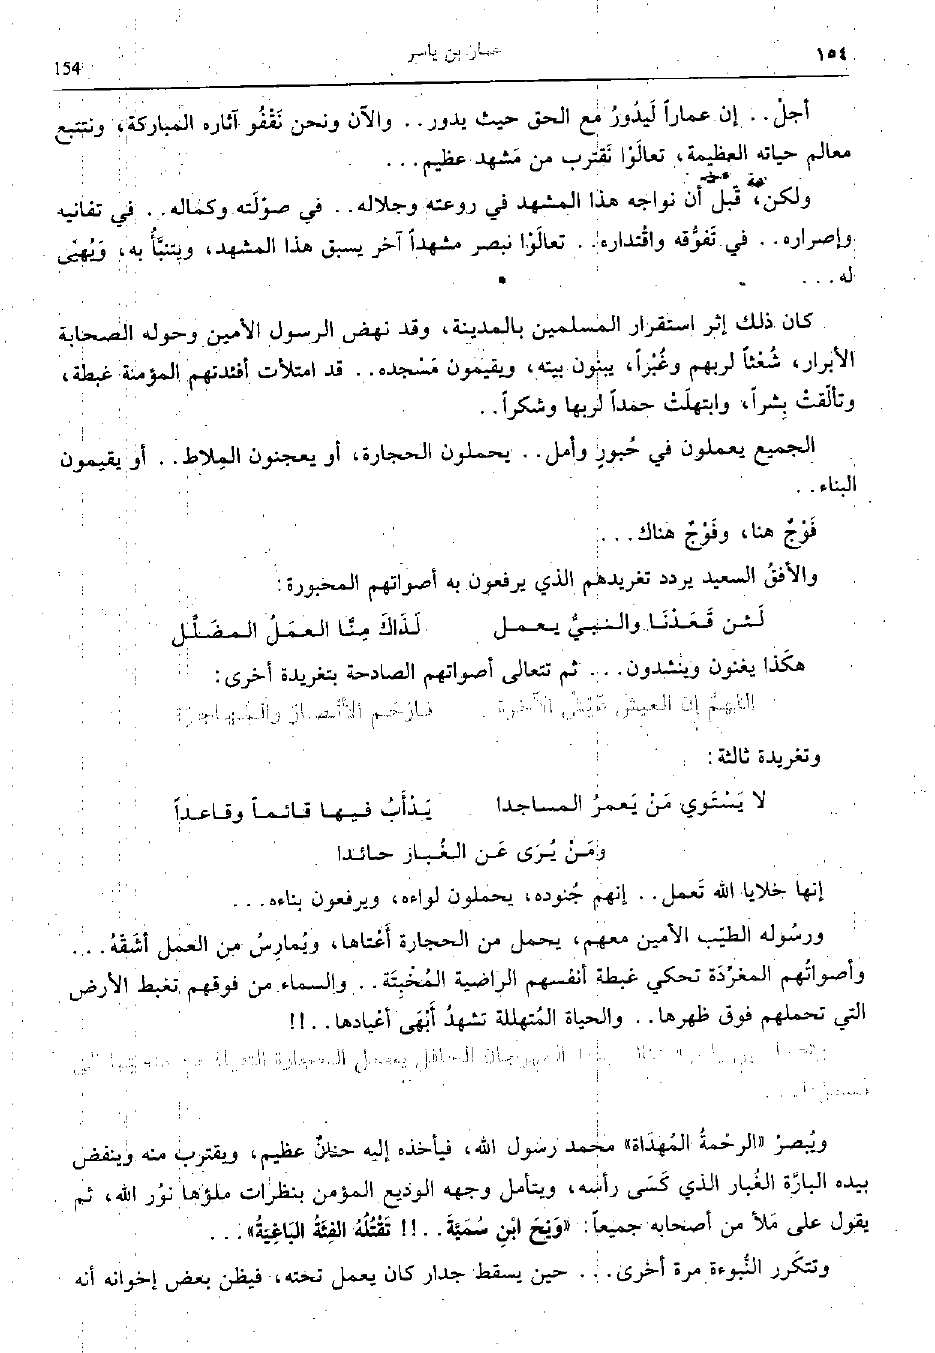 ١٥٤
عمار بن ياسر
154
أجلْ.. إن عماراً لَيدُورُ مَع الحق حيث يدور.. والآن ونحن نَقْفُو آثاره المباركة، ونتتبع
معالم حياته العظيمة، تعالَوْا نَقترب من مَشهد عظيم...
ولكن، قَبل أن نواجه هذا المشهد في روعته وجلاله.. في صوْلَته وكماله.. في تفانيه
وإصراره.. في تَفوُّقه واقْتداره.. تعالَوْا نبصر مشهداً آخر يسبق هذا المشهد، ويتنبَّأُ به، وَيُهيْى
له...
كان ذلك إثر استقرار المسلمين بالمدينة، وقد نهض الرسول الأمين وحوله الصحابة
الأبرار، شُعْثاً لربهم وغُبْراً، يبنون بيته، ويقيمون مَسْجده.. قد امتلأت أفئدتهم المؤمنة غبطة،
وتألّقتْ بِشراً، وابتهلَتْ حمداً لربها وشكراً..
الجميع يعملون في حُبورٍ وأمل.. يحملون الحجارة، أو يعجنون المِلاط.. أو يقيمون
البناء..
فَوْجٌ هنا، وفَوْجٌ هناك...
والأفقُ السعيد يردد تغريدهم الذي يرفعون به أصواتهم المحبورة:
لَـئـن قَـعَـدْنَـا والـنـبـيُّ يـعـمـل لَـذَاكَ مِـنَّـا العـمَـلُ الـمـضَـلَّـل
هكَذا يغنون وينشدون... ثم تتعالى أصواتهم الصادحة بتغريدة أخرى:
اللهمَّ إن العيش عَيْش الآخرة فـارْحَـم الأنْـصـارَ والـمُـهـاجـرة
وتغريدة ثالثة:
لا يَسْتَوي مَنْ يَعمرُ المساجدا يَـدْأَبُ فـيـهـا قـائـمـاً وقـاعـداً
ومَـنْ يُـرَى عَـن الـغُـبـار حـائـدا
إنها خلايا الله تَعمل.. إنهم جُنوده، يحملون لواءه، ويرفعون بناءه...
ورسُوله الطيّب الأمين معهم، يحمل من الحجارة أَعْتاها، ويُمارِسُ من العمل أشَقّهُ...
وأصواتُهم المغرِّدَة تحكي غبطة أنفسهم الراضية المُخْبِتَة.. والسماء من فوقهم تغبط الأرض
التي تحملهم فوق ظهرها.. والحياة المُتهللة تشهدُ أَبْهَى أعْيادها..!!
المهرجان الحافل يحمل الحجارة
ويُبصرُ «الرحْمةُ المُهدَاة» محمد رسول الله، فيأخذه إليه حنانٌ عظيم، ويقترب منه وينفض
بيده البارَّة الغُبار الذي كَسَى رأسه، ويتأمل وجهه الوديع المؤمن بنظرات ملؤها نوُر الله، ثم
يقول على مَلأ من أصحابه جميعاً: «وَيْحَ ابْنِ سُمَيَّةَ..!! تَقْتُلُهُ الفِئَةُ البَاغِيَةُ»...
وتتكَرر النُّبوءة مرة أخرى... حين يسقط جدار كان يعمل تحته، فيظن بعض إخوانه أنه